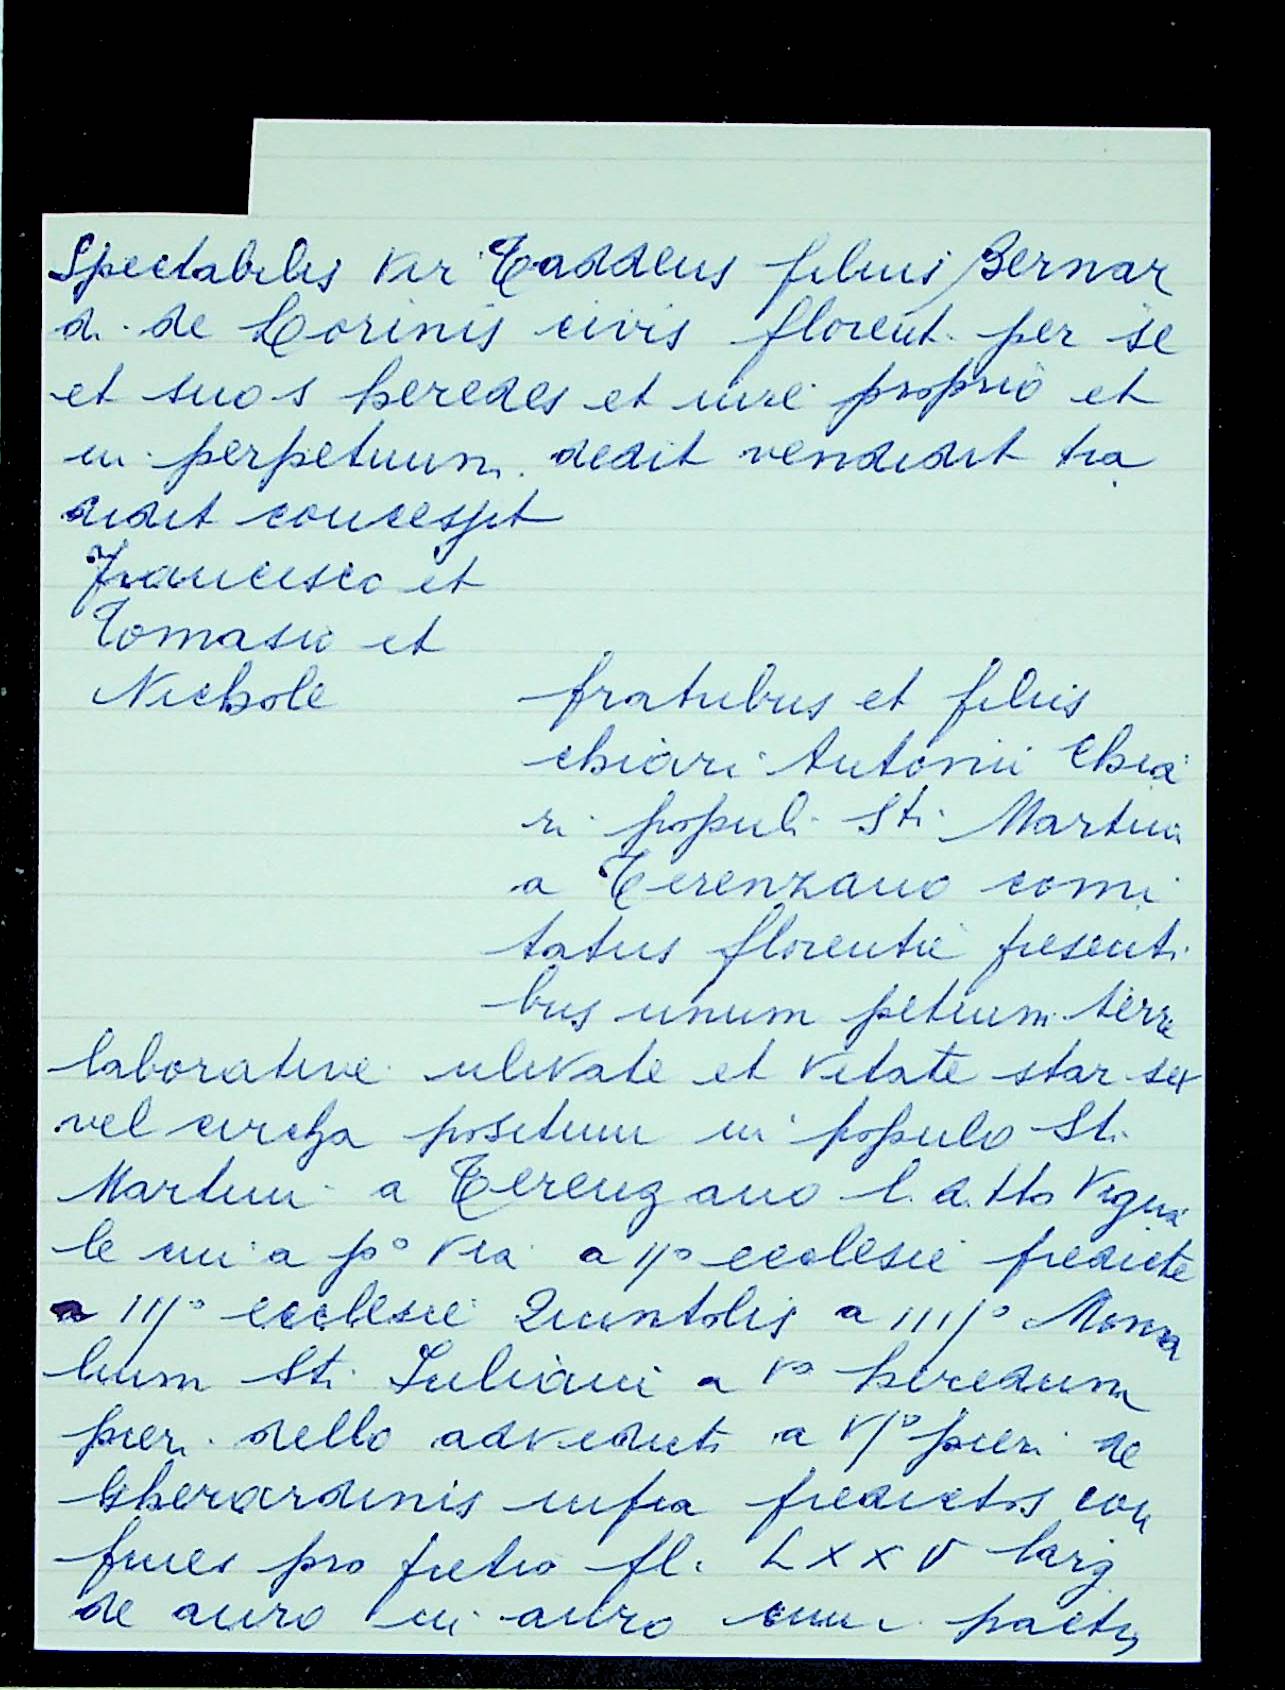 Spectabilis vir Taddeus filius Bernar
di de Lorinis civis florent. per se
et suos heredes et iure proprio et
in perpetuum dedit vendidit tra
didit concessit
Francisco et
Tomasio et
Nichole fratribus et filiis
chiari Antonii Chia
ri populi Sti Martini
a Terenzano comi
tatus florentie presenti
bus unum petium terre
laborative ulivate et vitate star sex
vel circha positum in populo Sti
Martini a Terenzano l. d. tto Vigna
le cui a po via a IIo ecclesie predicte
a IIIo ecclesie Quintolis a IIIIo Mona
lium Sti Iuliani a Vo heredum
pieri dello adveduti a VIo pieri de
Gherardinis infra predictos con
fines pro pretio fl. LXXV larg
de auro in auro cum pactis